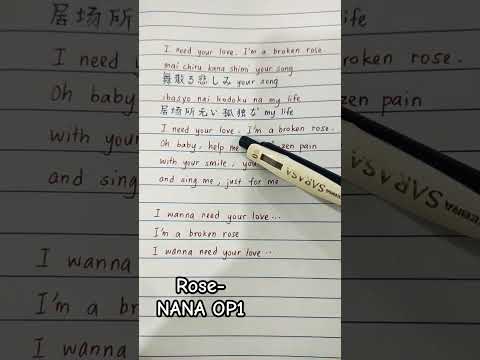 I need your love. I'm a broken rose.
mai chiru kana shimi your song
舞散る悲しみ your song
ibasyo nai kodoku na my life
居場所无い孤独な my life
I need your love. I'm a broken rose.
Oh baby, help me zen pain
with your smile, you
and sing me, just for me
I wanna need your love...
I'm a broken rose
I wanna need your love..
SARASA
Rose-
NANA OP1
居場所
I need
Oh baby
with your
and sing
I wanna
I'm a b
I wanna
my life
broken rose.
zen pain